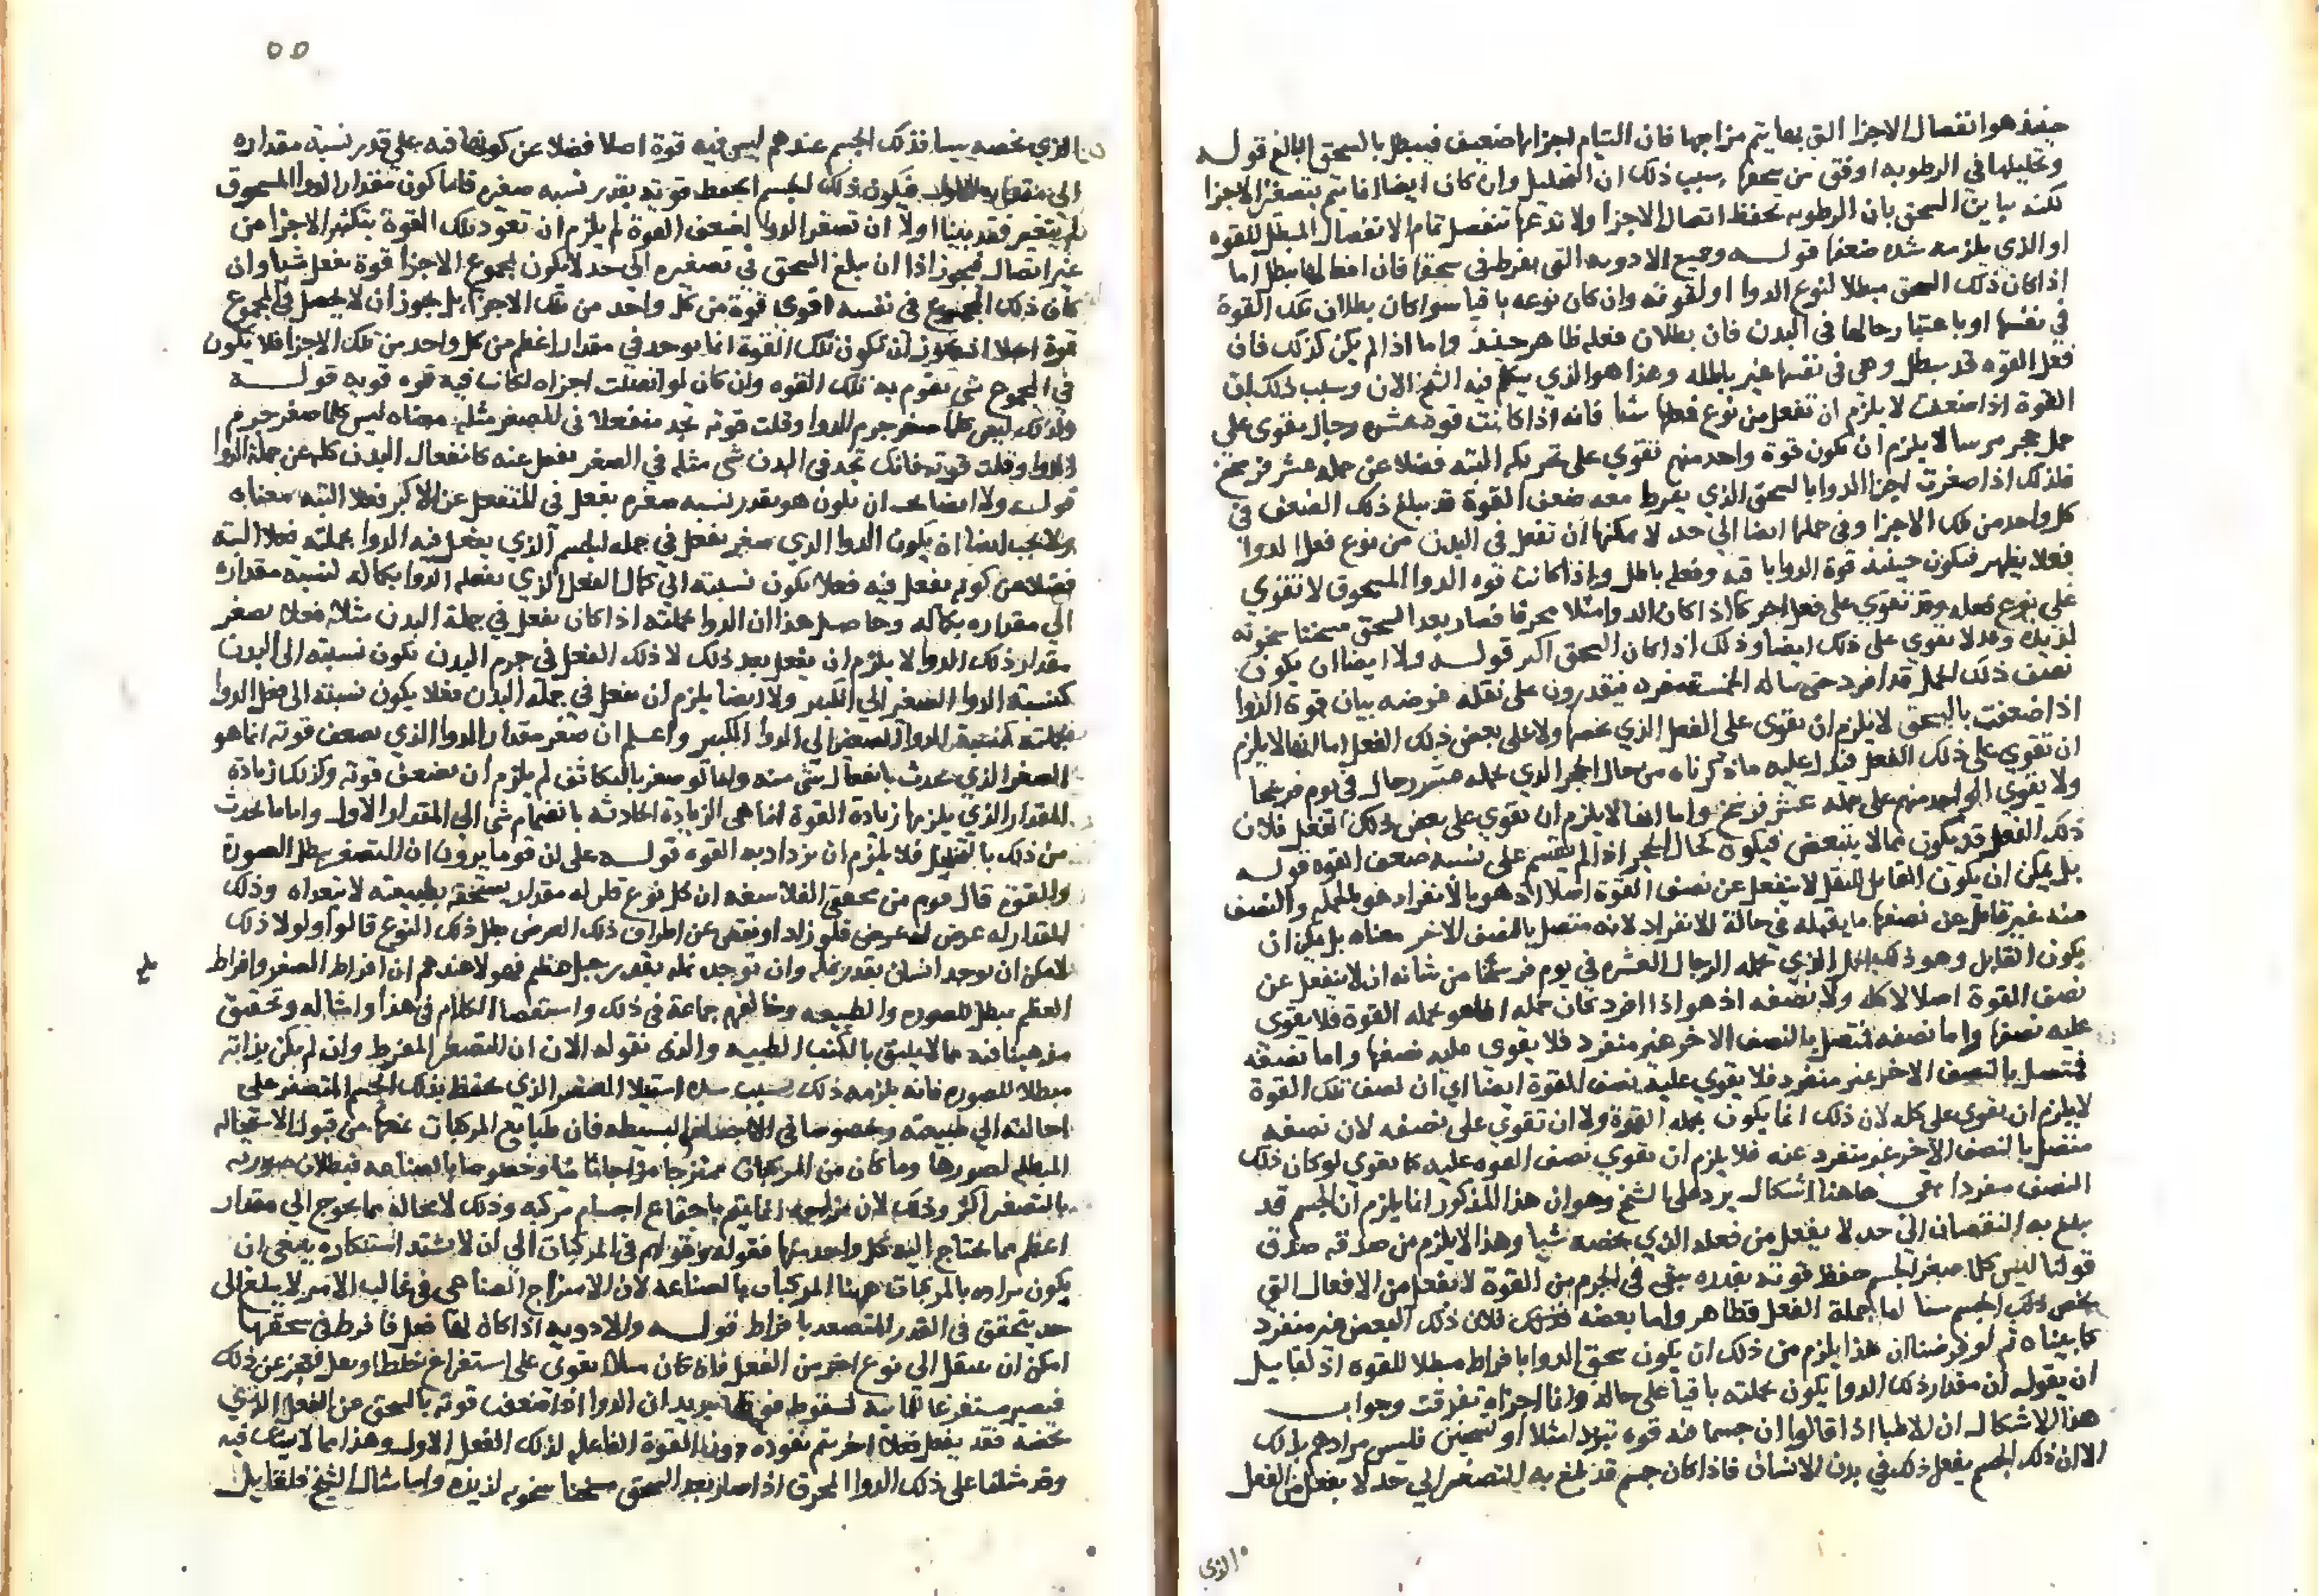 حينئذ هو انفصال الاجزا التي بها يتم مزاجها فان التيام اجزاءها ضعيف فيبطل بالسحق البالغ قوله
وتحليلها في الرطوبه اوفق من سحقها بسبب ذلك ان التحليل وان كان ايضا انما يتم بتصغر الاجزا
لكنه يباين السحق بان الرطوبه تحفظ اتصال الاجزا ولا تدعها تنفصل تمام الانفصال المبطل للقوه
او الذي يلزمه شده ضعفها قوله وجميع الادويه التي يفرط في سحقها فان افعالها تبطل اما
اذا كان ذلك السحق مبطلا لنوع الدوا او لقوته وان كان نوعه باقيا سوا كان بطلان تلك القوة
في نفسها او باعتبار حالها في البدن فان بطلان فعله ظاهر حينئذ واما اذا لم يكن كذلك فان
فعل القوه قد يبطل وهي في نفسها غير باطله وهذا هو الذي يتكلم فيه الشيخ الان وسبب ذلك ان
القوة اذا ضعفت لا يلزم ان تفعل من نوع فعلها شيا فانه اذا كانت قوة عشره رجال يقوى على
حمل حجر مرسا لا يلزم ان يكون قوة واحد منهم تقوي على تحريكه البته فضلا عن حمله عشر فرسخ
فلذلك اذا صغرت اجزا الدوا بالسحق الذي يفرط معه ضعف القوة قد يبلغ ذلك الضعف في
كل واحد من تلك الاجزا وفي جملتها ايضا الي حد لا يمكنها ان تفعل في البدن من نوع فعل الدوا
فعلا يظهر فيكون حينئذ قوة الدوا باقيه وفعله باطل واذا كانت قوه الدوا المسحوق لا تقوي
على نوع فعله وقد تقوي على فعل اخر كما اذا كان الدوا مثلا محرقا فصار بعد السحق مسخنا سخونه
لذيذه وقد لا تقوي على ذلك ايضا وذلك اذا كان السحق اكثر قوله ولا ايضا ان يكون
نصف ذلك الحمل قد افرد حتى يناله الخمسة مفرد فيقدرون على نقله غرضه بيان قوة الدوا
اذا ضعفت بالسحق لا يلزم ان تقوى على الفعل الذي يخصها ولا على بعض ذلك الفعل اما انها لا يلزم
ان تقوي على ذلك الفعل فدل عليه ما ذكرناه من حال الحجر الذي يحمله عشر رجال في يوم فرسخا
ولا يقوي الواحد منهم على حمله عشر فرسخ واما انها لا يلزم ان تقوي على بعض ذلك الفعل فلان
ذلك الفعل قد يكون مما لا يتبعض فيكون كحال الحجر اذا لم يقسم على نسبه ضعف القوه قوله
بل يمكن ان يكون القابل للفعل لا ينفعل عن نصف القوة اصلا اذ هو بالانفراد هو بالجمله والنصف
منه غير قابل عن نصفها ما يقبله في حالة الانفراد لانه متصل بالنصف الاخر معناه بل يمكن ان
يكون القابل وهو ذلك الحمل الذي يحمله الرجال العشره في يوم فرسخا من شانه ان لا ينفعل عن
نصف القوة اصلا لا كله ولا نصفه اذ هو اذا افرد كان جمله انما هو بجمله القوة فلا يقوى
عليه نصفها واما نصفه فمتصل بالنصف الاخر غير منفرد فلا يقوى عليه نصفها واما نصفه
فمتصل بالنصف الاخر غير منفرد فلا يقوي عليه نصف القوة ايضا اي ان نصف تلك القوة
لا يلزم ان يقوى على كله لان ذلك انما يكون بجمله القوة ولا ان تقوي على نصفه لان نصفه
متصل بالنصف الاخر غير منفرد عنه فلا يلزم ان تقوي نصف القوه عليه كما يقوي لو كان ذلك
النصف مفردا بقي هاهنا اشكال يرد على الشيخ وهو ان هذا المذكور انما يلزم ان الجسم قد
يبلغ به النقصان الي حد لا يفعل من فعله الذي يخصه شيا وهذا لا يلزم من صدقه صدق
قولنا ليس كلما صغر الجسم حفظ قوته بقدره يبقى في الجرم من القوة لا تفعل من الافعال التي
تخص ذلك الجسم شيا اما جملة الفعل فظاهر واما بعضه فلان ذلك البعض غير منفرد
كما بيناه ثم لو فرضنا ان هذا يلزم من ذلك ان يكون سحق الدوا بافراط مبطلا للقوه اذ لقايل
ان يقول ان مقدار ذلك الدوا يكون بجملته باقيا على حاله وانما اجزاه تفرقت وجواب
هذا الاشكال ان الاطبا اذا قالوا ان جسما فيه قوه تبريد مثلا او تسخين فليس مرادهم بذلك
الا ان ذلك الجسم يفعل ذلك في بدن الانسان فاذا كان جسم قد بلغ به التصغر الي حد لا يفعل من الفعل
الذي
٥٥
الذي يخصه شيا فذلك الجسم عندهم ليس فيه قوة اصلا فضلا عن كونها فيه على قدر نسبة مقداره
الى فيكون ذلك الجسم انحفظ قوته بقدر نسبه صغره فاما كون مقدار الدوا المسحوق
لم يتغير فقد بينا اولا ان تصغر الدوا اضعف القوة لم يلزم ان تعود تلك القوة بتكثير الاجزا من
غير اتصال فيجوز اذا ان يبلغ السحق في تصغيره الى حد لا يكون لمجموع الاجزا قوة بفعل شيا وان
كان ذلك المجموع في نفسه اقوى قوة من كل واحد من تلك الاجزا بل يجوز ان لا يحصل في المجموع
قوة اصلا اذ يجوز ان تكون تلك القوة انما توجد في مقدار اعظم من كل واحد من تلك الاجزا فلا يكون
في المجموع شي تقوم به تلك القوه وان كان لو اتصلت اجزاه لكانت فيه قوه قويه قوله
وكذلك ليس كلما صغر جرم الدوا وقلت قوته تجد منفعلا في الصغر مثله معناه ليس كلما صغر جرم
الدوا وقلت قوته فانك تجد في البدن شي مثله في الصغر ينفعل عنه كانفعال البدن كله عن جملة الدوا
قوله ولا ايضا يجب ان يكون هو بقدر نسبه صغره يفعل في المنفعل عن الاكبر فعلا البته معناه
ولا يجب ايضا ان يكون الدوا الذي صغر يفعل في جمله الجسم الذي يفعل فيه الدوا بجملته فعلا البتة
فضلا عن كونه يفعل فيه فعلا يكون نسبته الى كمال الفعل الذي يفعله الدوا بكماله لنسبه مقداره
الى مقداره بكماله وحاصل هذا ان الدوا بجملته اذا كان يفعل في جملة البدن مثلا فعلا فصغر
مقدار ذلك الدوا لا يلزم ان يفعل بعد ذلك لا ذلك الفعل في جرم البدن يكون نسبته الى البدن
كنسبة الدوا الصغير الي الكبير ولا ايضا يلزم ان يفعل في جملة البدن فعلا يكون نسبته الى فعل الدوا
بجملته كنسبة الدوا الصغير الى الدوا الكبير واعلم ان صغر مقدار الدوا الذي يضعف قوته انما هو
الصغر الذي يحدث بانفصال شي منه ولهذا لو صغر بالتكاثف لم يلزم ان يضعف قوته وكذلك زيادة
المقدار الذي يلزمها زيادة القوة انما هي الزيادة الحادثه بانضمام شي الى المقدار الاول واما ما يحدث
من ذلك بالتخلخل فلا يلزم ان يزداد به القوه قوله على ان قوما يرون ان التصغر يبطل الصورة
والقوة قال قوم من محققي الفلاسفه ان كل نوع فان له مقدار يستحقه بطبيعته لا يتعداه وذلك
المقدار له عرض فلو زاد او نقص عن اطراف ذلك العرض بطل ذلك النوع قالوا ولولا ذلك
لامكن ان يوجد انسان بقدر نملة وان توجد نمله بقدر جبل عظيم فهولا عندهم ان افراط الصغر وافراط
العظم يبطل الصوره والطبيعه وخالفهم جماعة في ذلك واستقصا الكلام في هذا وامثاله وتحقيق
مذهبنا فيه مما لا يليق بالكتب الطبيه والذي نقوله الان ان التصغر المفرط وان لم يكن بذاته
مبطلا للصوره فانه يلزمه ذلك بسبب شده استيلا المصغر الذي يحفظ بذلك الجسم المتصغر على
احالته الى طبيعته وخصوصا في الاجسام البسيطه فان طبايع المركبات تمنعها من قبول الاستحاله
المبطله لصورها وما كان من المركبات ممتزجا مزاجا ثانيا وخصوصا بالصناعه فبطلان صورته
بالتصغر اكثر وذلك لان مزاجه انما يتم باجتماع اجسام مركبه وذلك لا محالة مما يحوج الي مقدار
اعظم مما يحتاج اليه كل واحد منها فقوله وقولهم في المركبات الى ان لا يشتد استنكاره ينبغي ان
يكون مراده بالمركبات ههنا المركبات بالصناعه لان الامتزاج الصناعي في غالب الامر لا يبلغ الى
حد يتحقق في القدر المتصعد بافراط قوله والادويه اذا كان لها فعل فافرط في سحقها
امكن ان ينتقل الى نوع اخر من الفعل فان كان مثلا يقوى على استفراغ خلط او ثفل فيعجز عن ذلك
فيصير مستفرغا للمائيه لسقوط قوته يريد ان الدوا اذا ضعفت قوته بالسحق عن الفعل الذي
يخصه فقد يفعل فعلا اخر يتم نفوذه دون القوة الفاعله لذلك الفعل الاول وهذا مما لا يشك فيه
وقد مثلنا على ذلك الدوا المحرق اذا صار بعد السحق مسخنا سخونه لذيذه واما مثال الشيخ فلقايل